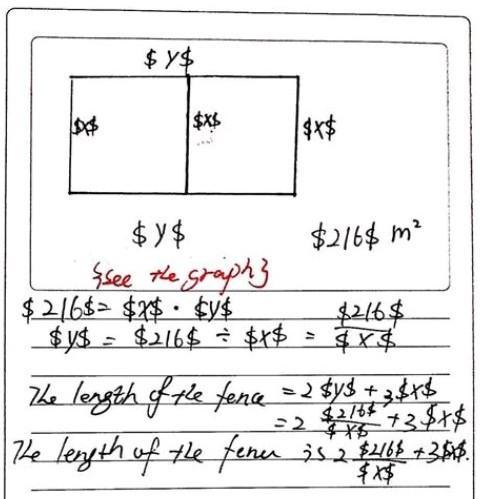 $ y $
$x$ $x$ $x$
$ y $ $216$ m²
{see the graph}
$ 216 $ = $x$ · $y$ $216$
$y$ = $216$ ÷ $x$ = $ x $
The length of the fence = 2 $y$ + 3 $x$
= 2 $216$ / $ x $ + 3 $x$
The length of the fence is 2 $216$ / $x$ + 3 $x$.